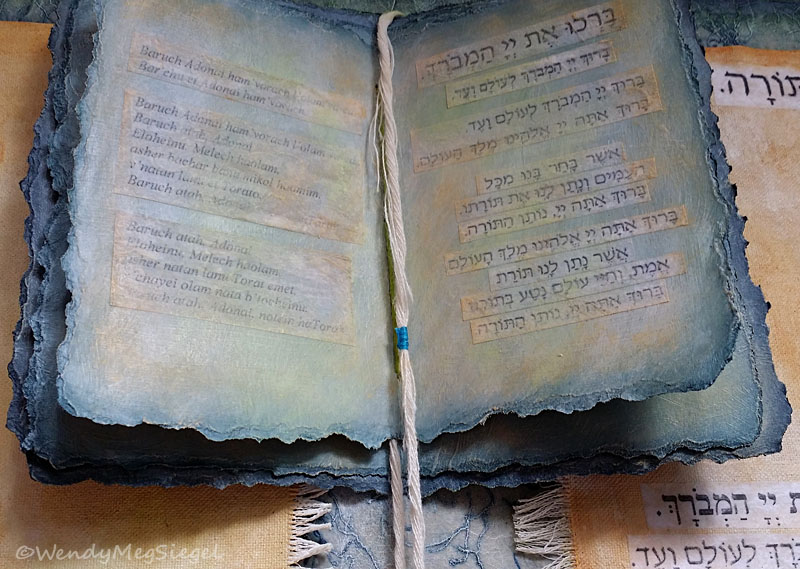 Baruch Adonai ham'vorach l'olam
Bar'chu et Adonai ham'vorach.
Baruch Adonai ham'vorach l'olam
Baruch atah, Adonai
Eloheinu, Melech haolam,
asher bachar banu mikol haamim,
v'natan lanu et Torato.
Baruch atah, Adonai
Baruch atah, Adonai
Eloheinu, Melech haolam,
asher natan lanu Torat emet,
v'chayei olam nata b'tocheinu.
Baruch atah, Adonai, notein haTorah
בָּרְכוּ אֶת יְיָ הַמְבֹרָךְ.
בָּרוּךְ יְיָ הַמְבֹרָךְ לְעוֹלָם וָעֶד.
בָּרוּךְ יְיָ הַמְבֹרָךְ לְעוֹלָם וָעֶד.
בָּרוּךְ אַתָּה יְיָ אֱלֹהֵינוּ מֶלֶךְ הָעוֹלָם,
אֲשֶׁר בָּחַר בָּנוּ מִכָּל
הָעַמִּים וְנָתַן לָנוּ אֶת תּוֹרָתוֹ.
בָּרוּךְ אַתָּה יְיָ, נוֹתֵן הַתּוֹרָה.
בָּרוּךְ אַתָּה יְיָ אֱלֹהֵינוּ מֶלֶךְ הָעוֹלָם
אֲשֶׁר נָתַן לָנוּ תּוֹרַת
אֱמֶת, וְחַיֵּי עוֹלָם נָטַע בְּתוֹכֵנוּ.
בָּרוּךְ אַתָּה יְיָ, נוֹתֵן הַתּוֹרָה.
תּוֹרָה.
ת יְיָ הַמְבֹרָךְ.
ךְ לְעוֹלָם וָעֶד.
©WendyMegSiegel